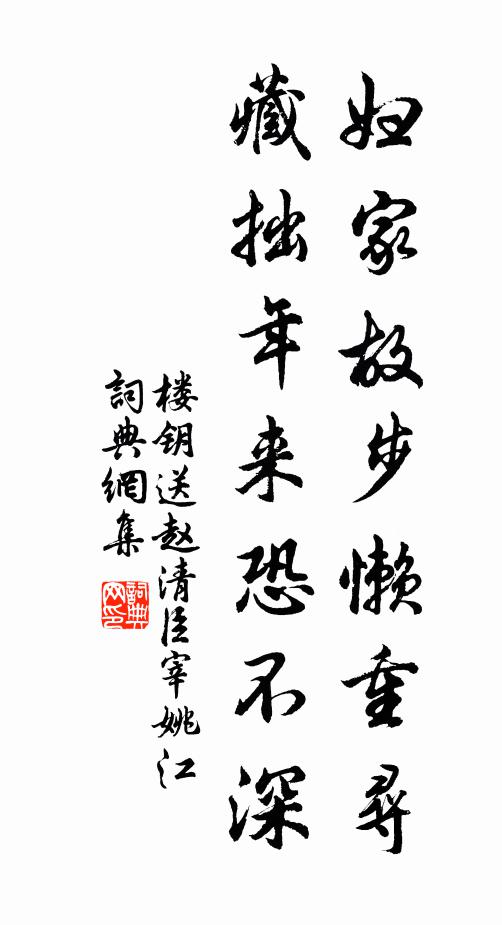 妇家故步懒重尋
藏拙年来恐不深
楼钥送赵清臣宰姚江
詞典網集
詞典网印